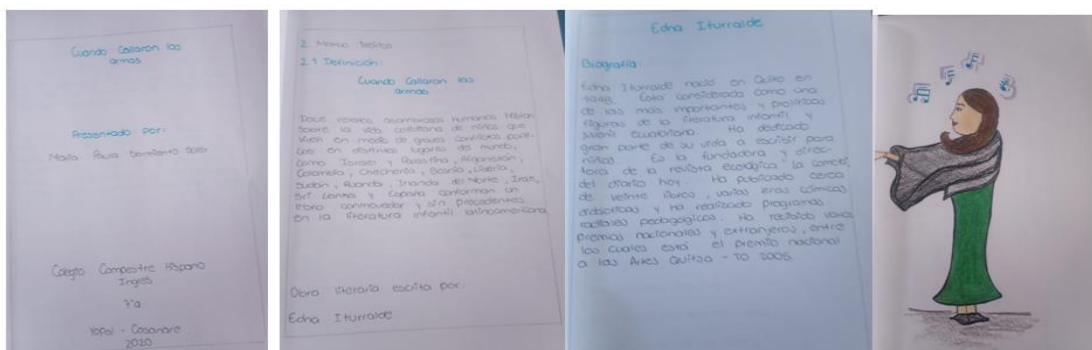 Cuando Callaron las
armas
Presentado por:
María Paula Sarmiento
Colegio Campestre Hispano
Inglés
7°a
Yopal - Casanare
2020
2. Marco Teórico
2.1 Definición:
Cuando Callaron las
armas
Doce relatos asombrosos humanos hablan
sobre la vida cotidiana de niños que
viven en medio de graves conflictos
en distintos lugares del mundo,
como Israel y Palestina, Afganistán,
Colombia, Chechenia, Bosnia, Liberia,
Sudán, Ruanda, Irlanda del Norte, Irak,
Sri Lanka y España conforman un
libro conmovedor y sin precedentes
en la literatura infantil latinoamericana
Obra literaria escrita por:
Edna Iturralde
Edna Iturralde
Biografía:
Edna Iturralde nació en Quito en
1948. Está considerada como una
de las más importantes y prolíficas
figuras de la literatura infantil y
juvenil ecuatoriana. Ha dedicado
gran parte de su vida a escribir para
niños. Es la fundadora y direc-
tora de la revista ecológica, la cometa,
del diario hoy. Ha publicado cerca
de veinte libros, varias
didácticas y ha realizado programas
radiales pedagógicos. Ha recibido varios
premios nacionales y extranjeros, entre
los cuales está el premio nacional
a las Artes Quitsa - TO 2005.